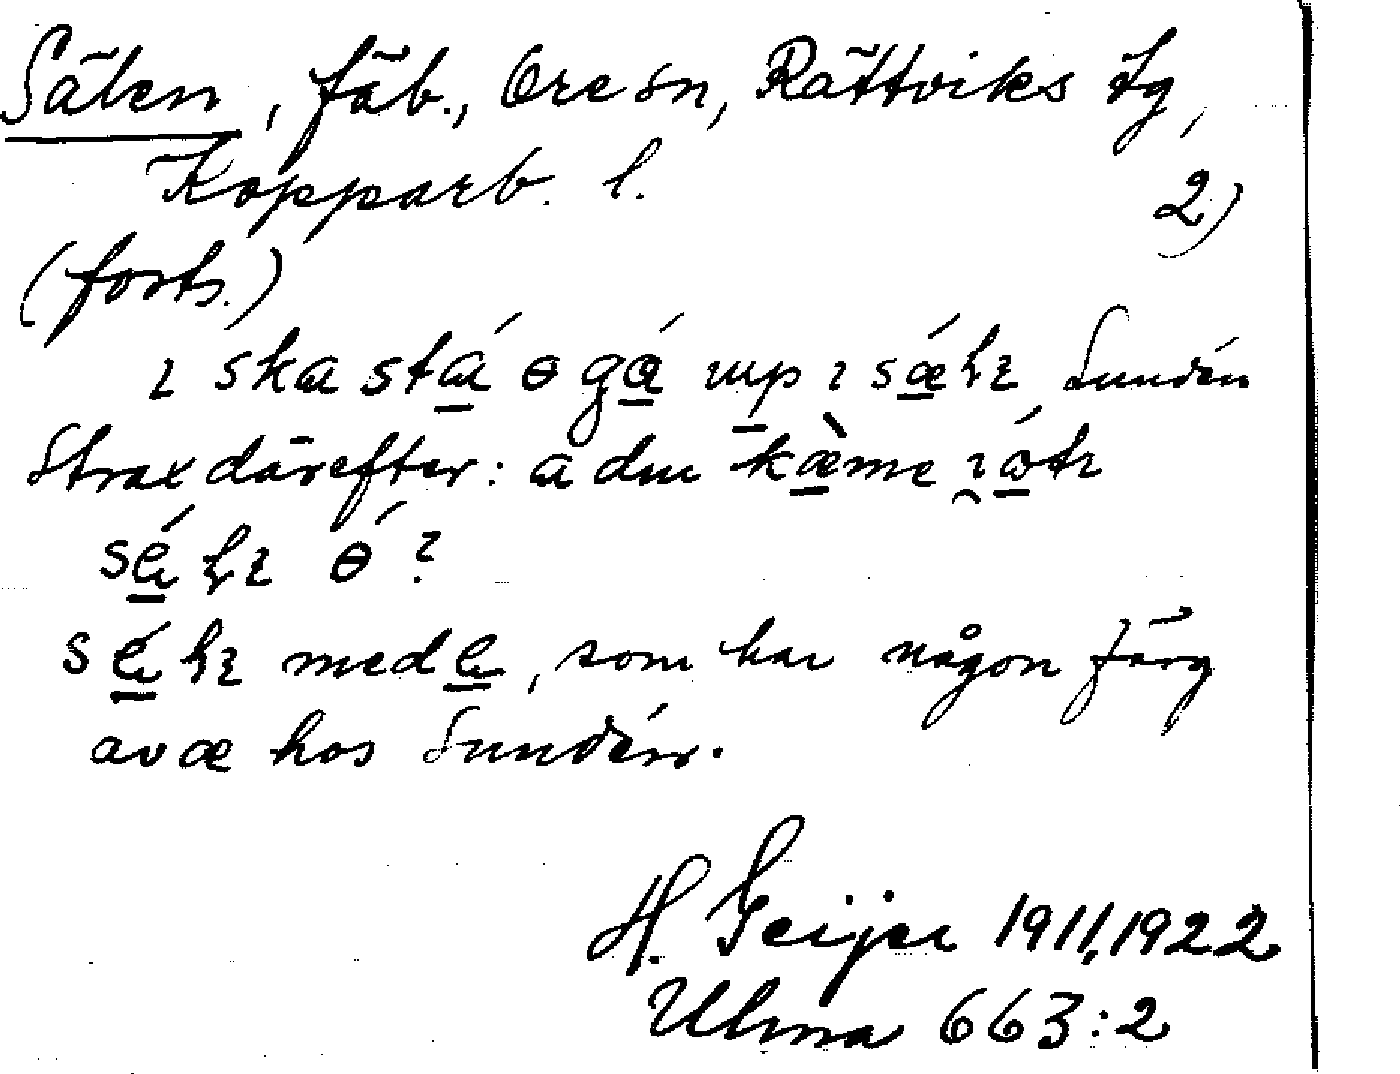 Sälen, fäb., Ore sn, Rättviks tg,
Kopparb. l.
2)
(forts.)
ɩ ska stá ɵ gá up ɩ sǽlɩ Sundén
Strax därefter: a du kæ̀me
sélɩ ɵ́?
sélɩ med e, som har någon färg
av æ hos Sundén.
H. Geijer 1911, 1922
Ulma 663:2